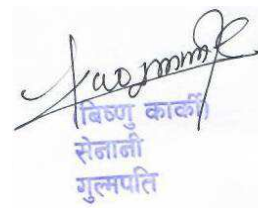 (बिष्णु कार्की)
सेनानी
गुल्मपति